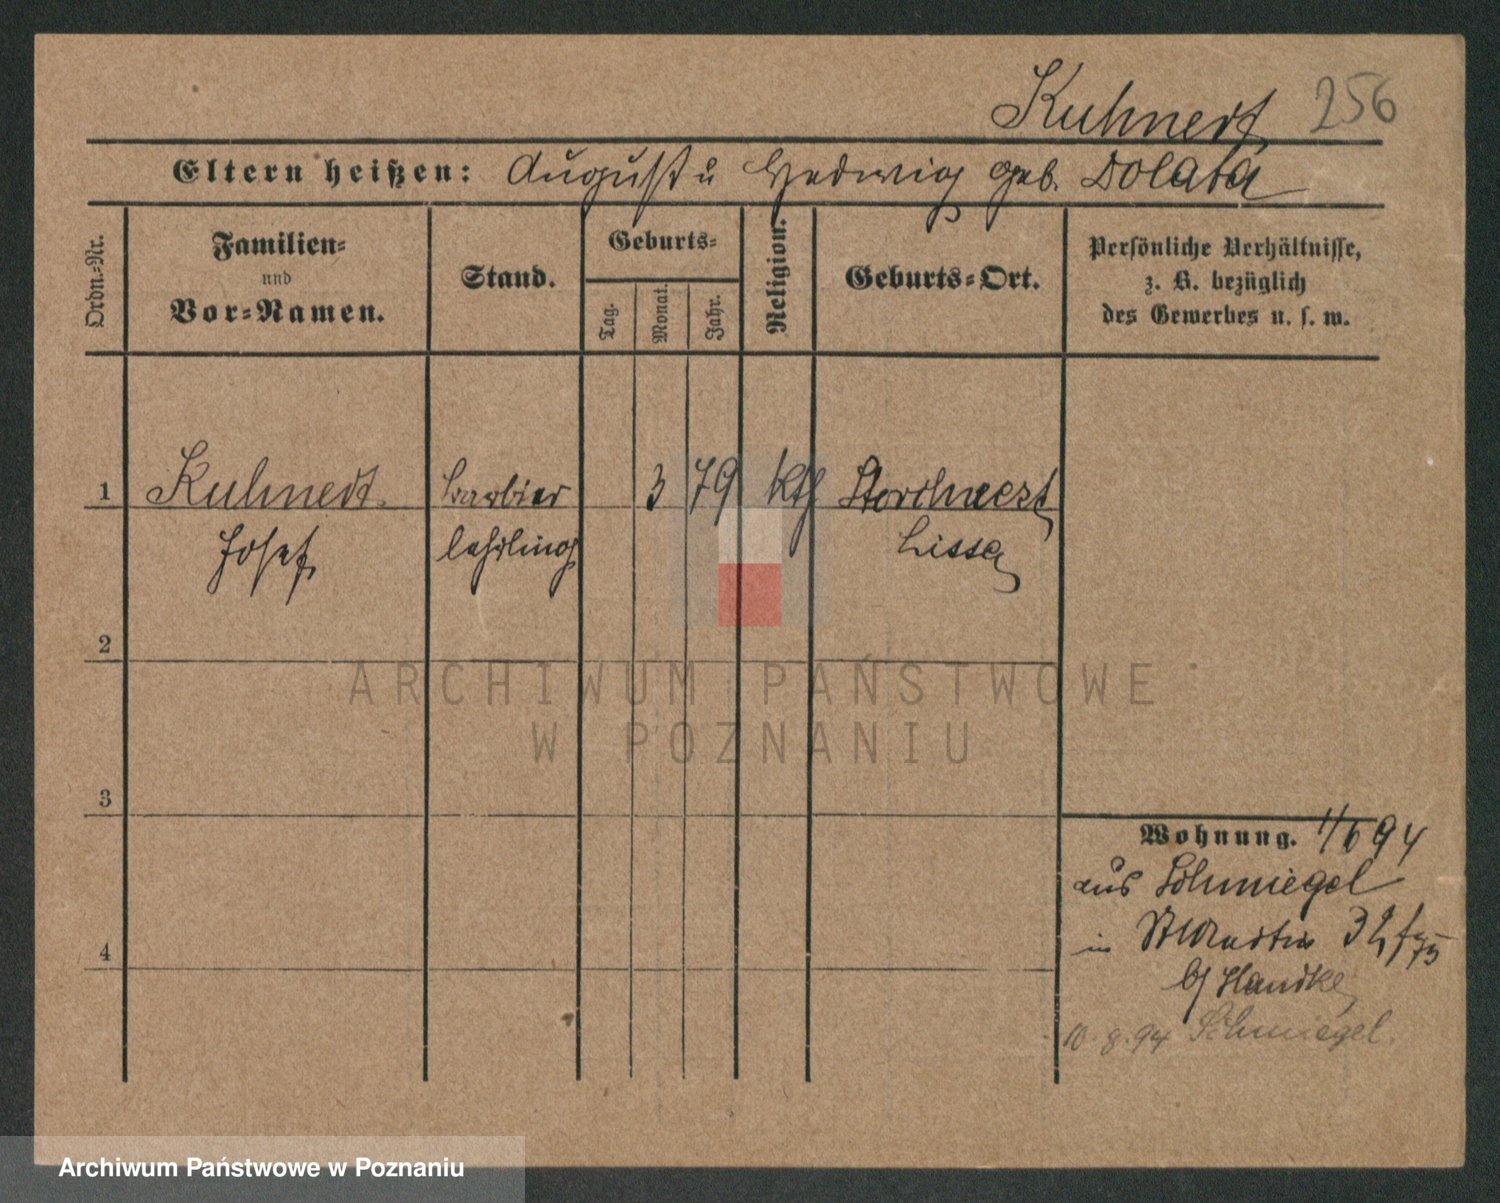 Kuhnert 256
Eltern heißen: August u Hedwig geb. Dolata
Ordn.-Nr.
Familien-
und
Vor-Namen.
Stand.
Geburts-
Tag.
Monat.
Jahr.
Religion.
Geburts-Ort.
Persönliche Verhältnisse,
z. B. bezüglich
des Gewerbes u. s. w.
1 Kuhnert Barbier 3 79 kth Storchnest
Josef lehrling Lissa
2
3
4
Wohnung. 1/6 94
aus Schmiegel
in St Martin 32
b/ Handke
10.8.94 Schmiegel.
ARCHIWUM PAŃSTWOWE
W POZNANIU
Archiwum Państwowe w Poznaniu